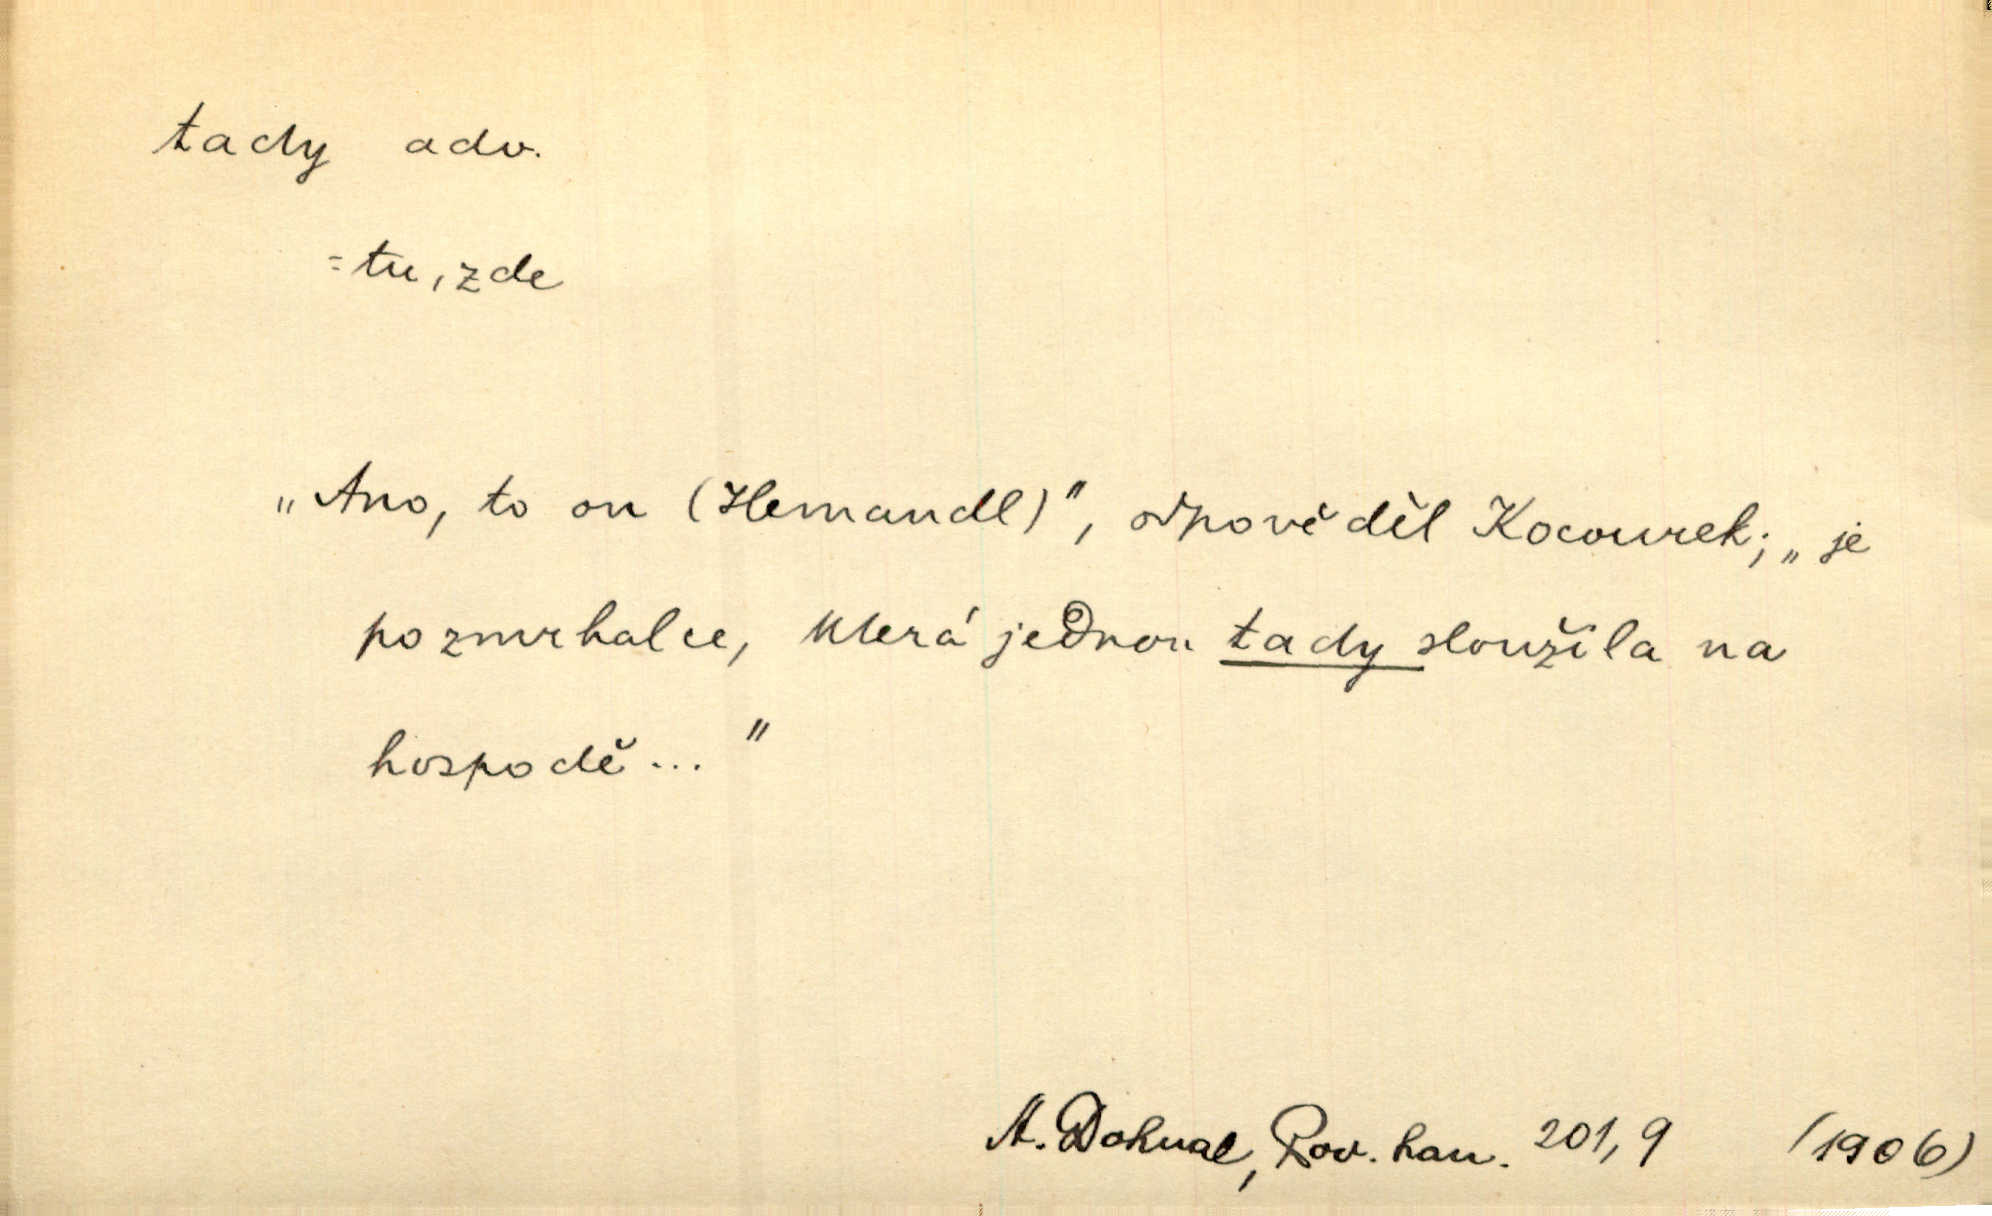 tady adv.
= tu, zde
„Ano, to on (Hemandl)", odpověděl Kocourek; „je
pozmrhalce, která jednou tady sloužila na
hospodě..."
A. Doknal, Pov. han. 201, 9 (1906)